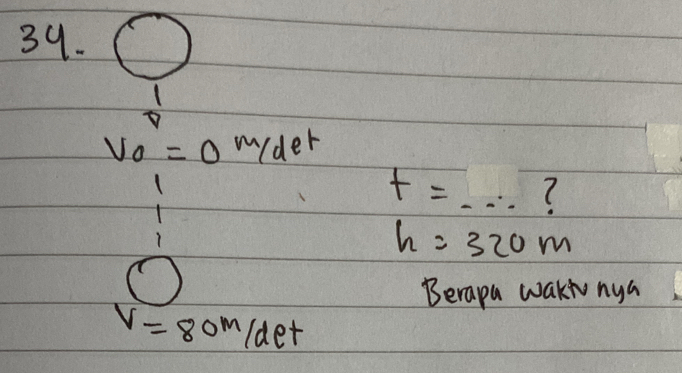 34.
Vo = 0 m/det
t = .... ?
h = 320 m
Berapa waktunya
V = 80 m/det